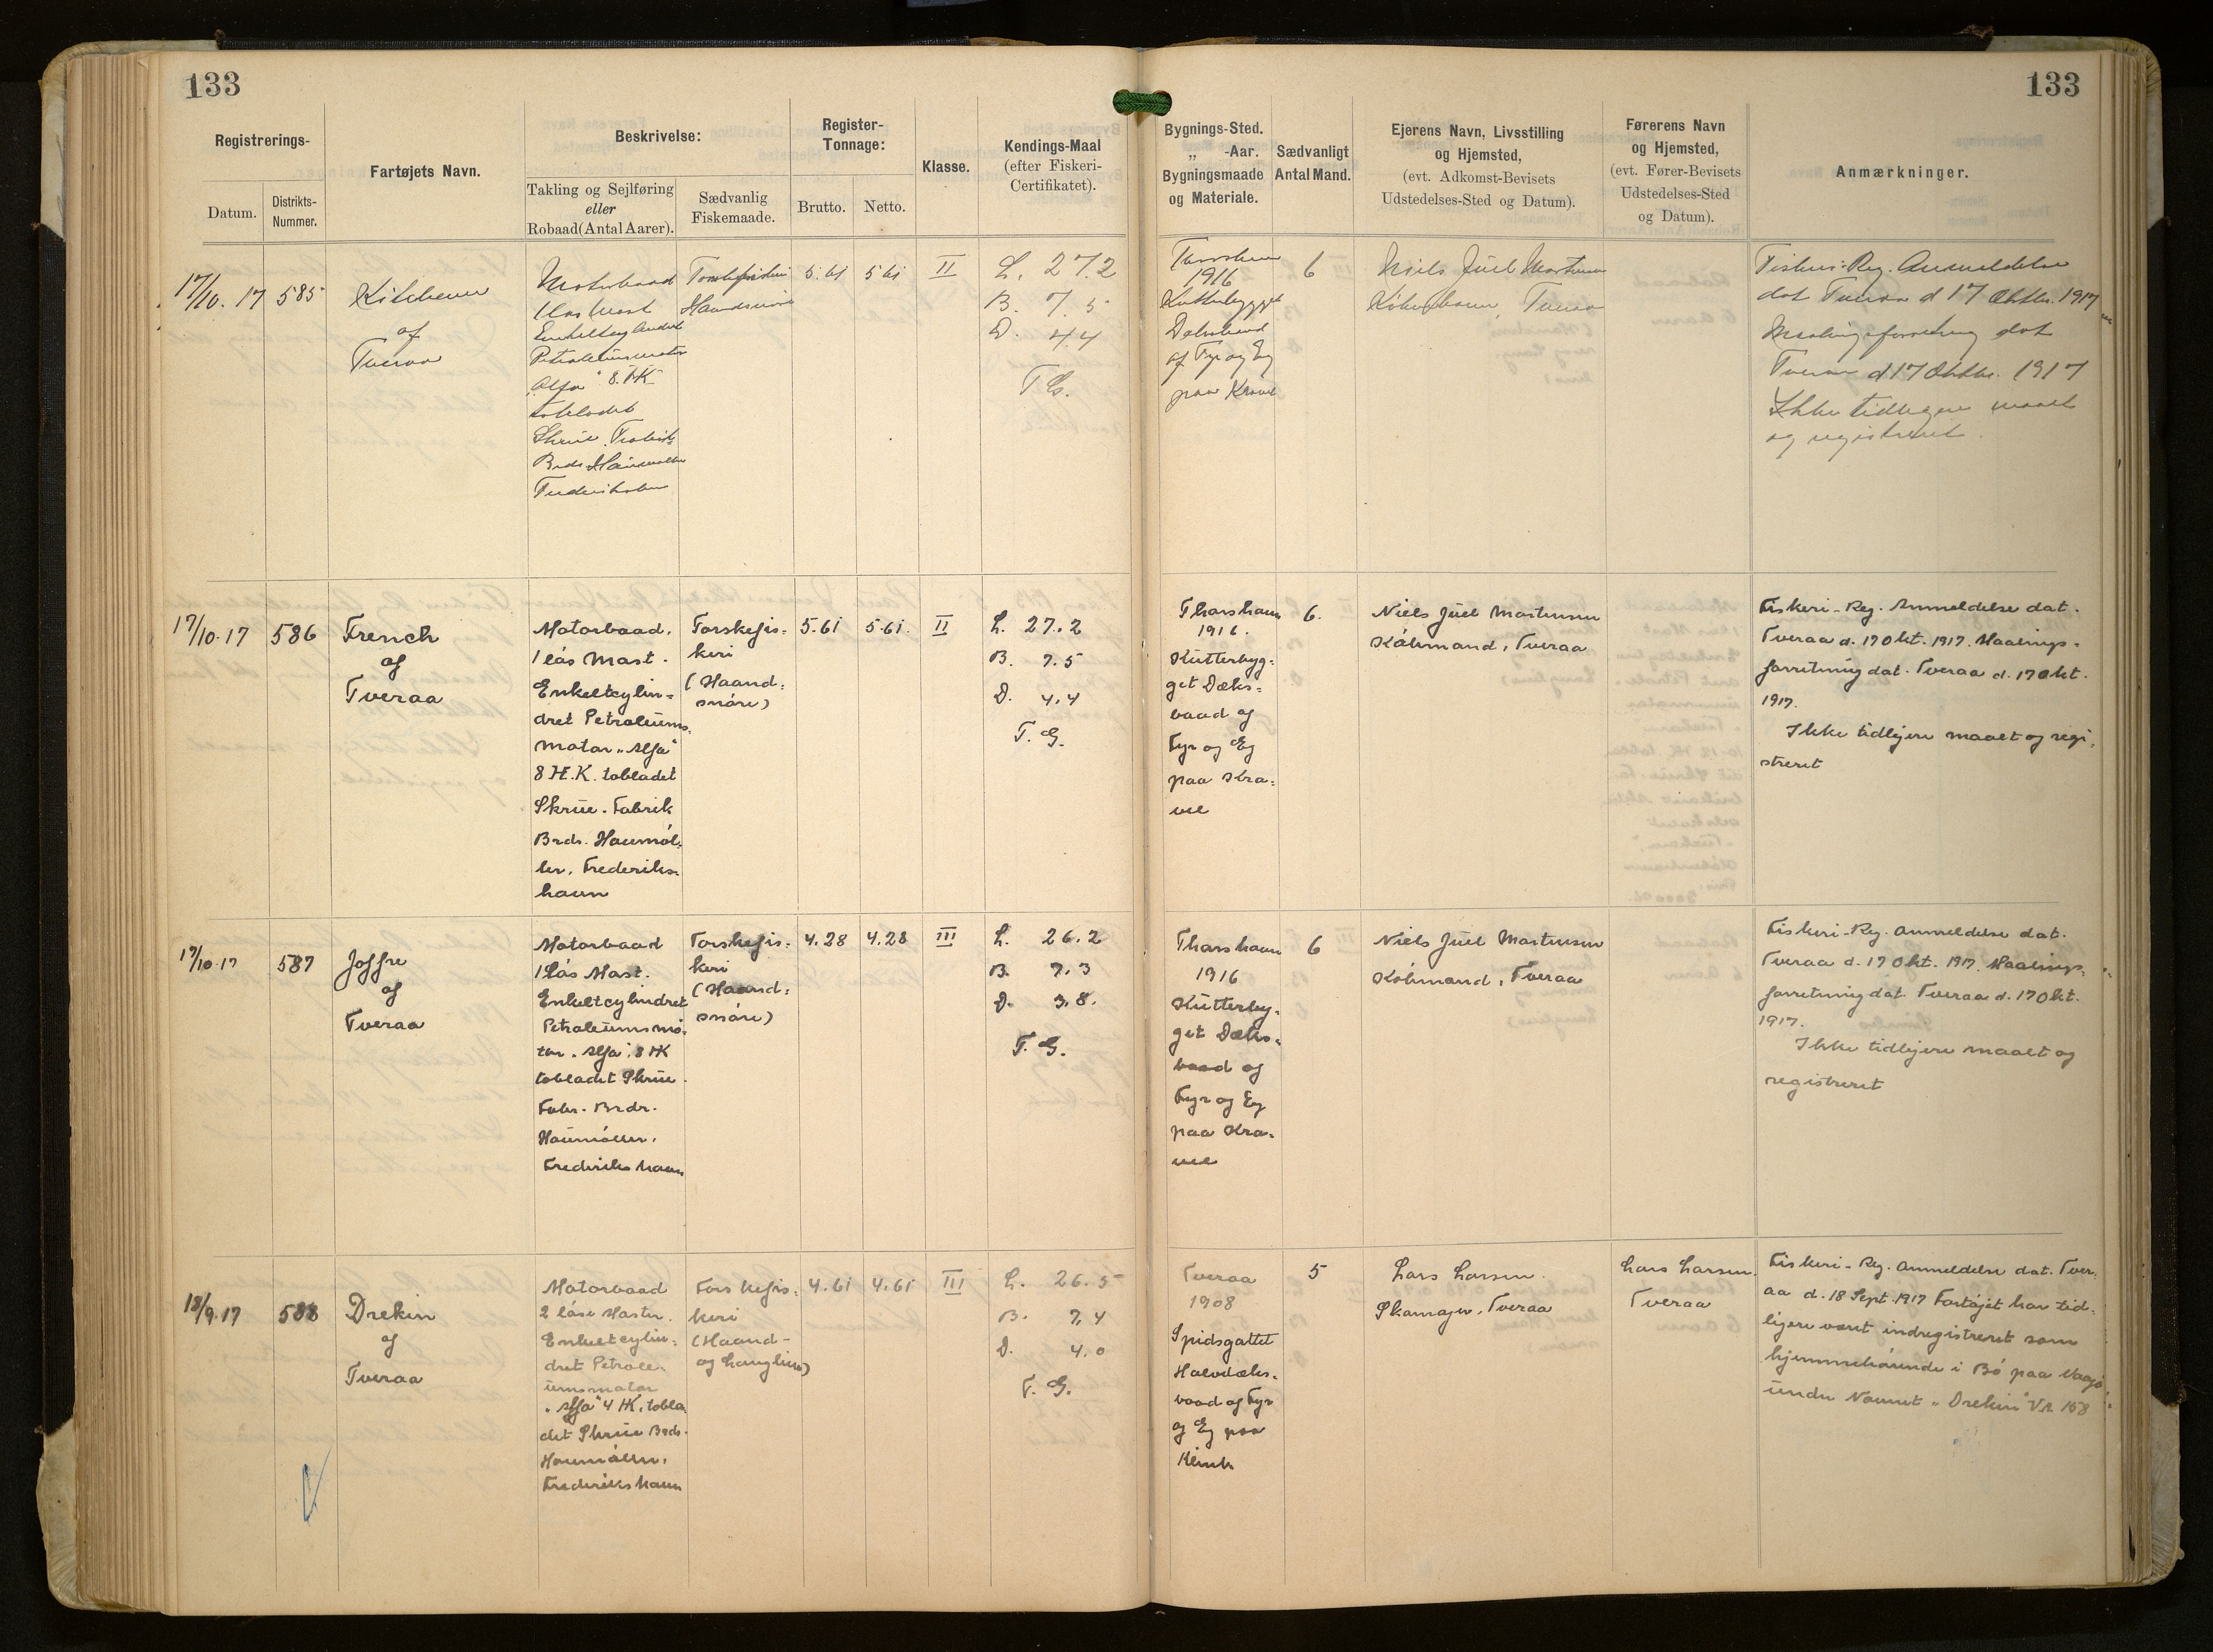 133
133
Registrerings-
Datum.
Distrikts-
Nummer.
Fartøjets Navn.
Beskrivelse:
Takling og Sejlføring
eller
Robaad (Antal Aarer).
Sædvanlig
Fiskemaade.
Register-
Tonnage:
Brutto.
Netto.
Klasse.
Kendings-Maal
(efter Fiskeri-
Certifikatet).
Bygnings-Sted.
„ -Aar.
Bygningsmaade
og Materiale.
Sædvanligt
Antal Mand.
Ejerens Navn, Livsstilling
og Hjemsted,
(evt. Adkomst-Bevisets
Udstedelses-Sted og Datum).
Førerens Navn
og Hjemsted,
(evt. Fører-Bevisets
Udstedelses-Sted
og Datum).
Anmærkninger.
17/10. 17
585
Kitchener
af
Tveraa
Motorbaad
1 løs Mast
Petroleumsmotor
"Alfa" 8. HK
tobladet
Skrue. Fabrik
Brdr. Houmøller
Frederikshavn
Torskefiskeri
Haandsnøre
5.61
5.61
II
L. 27.2
B. 7.5
D. 4.4
T. G.
Thorshavn
1916
Kutterbygget
Dæksbaad
af Fyr og Eg
paa Kravel
6
Niels Juel Mortensen
Købmand, Tveraa
Fiskeri-Reg. Anmeldelse
dat Tveraa d 17 Oktbr. 1917
Maalingsforretning dat
Tveraa d 17 Oktbr. 1917
Ikke tidligere maalt
og registreret.
17/10.17
586
French
af
Tveraa
Motorbaad.
1 løs Mast.
Enkeltcylin-
dret Petroleums-
motor „Alfa"
8 H.K. tobladet
Skrue. Fabrik
Brdr. Houmøl-
ler, Frederiks-
havn
Torskefis-
keri
(Haand-
snøre)
5.61
5.61.
II
L. 27.2
B. 7.5
D. 4,4
T. G.
Thorshavn
1916.
Kutterbyg-
get Dæks-
baad af
Fyr og Eg
paa Kra-
vel
6.
Niels Juel Mortensen
Købmand, Tveraa
Fiskeri-Reg. Anmeldelse dat.
Tveraa d. 17 Okt. 1917. Maalings-
forretning dat. Tveraa d. 17 Okt.
1917.
Ikke tidligere maalt og regi-
streret
17/10.17
587
Joffre
af
Tveraa
Motorbaad
1 løs Mast.
Enkeltcylindret
Petroleumsmo-
tor „Alfa". 8 HK
tobladet Skrue.
Fabr. Brdr.
Houmøller,
Frederikshavn
Torskefis-
keri
(Haand-
snøre)
4.28
4.28
III
L. 26.2
B. 7.3
D. 3,8.
T. G.
Thorshavn
1916
Kutterby-
get Dæks-
baad af
Fyr og Eg
paa Kra-
vel
6
Niels Juel Mortensen
Købmand, Tveraa
Fiskeri-Reg. Anmeldelse dat.
Tveraa d. 17 Okt. 1917. Maalings-
forretning dat. Tveraa d. 17 Okt.
1917.
Ikke tidligere maalt og
registreret
18/9.17
588
Drekin
af
Tveraa
Motorbaad
2 løse Master.
Enkeltcylin-
dret Petrole-
umsmotor
„Alfa" 4 HK, tobla-
det Skrue Brdr.
Houmøller,
Frederikshavn
Torskefis-
keri
(Haand-
og Langline)
4.61
4.61
III
L. 26.5
B. 7,4
D. 4.0
T. G.
Tveraa
1908
Spidsgattet
Halvdæks-
baad af Fyr
og Eg paa
Klink
5
Lars Larsen.
Skomager, Tveraa
Lars Larsen,
Tveraa
Fiskeri-Reg. Anmeldelse dat. Tver-
aa d. 18 Sept. 1917 Fartøjet har tid-
ligere været indregistreret som
hjemmehørende i Bø paa Vaagø
under Navnet „Drekin" VA 158